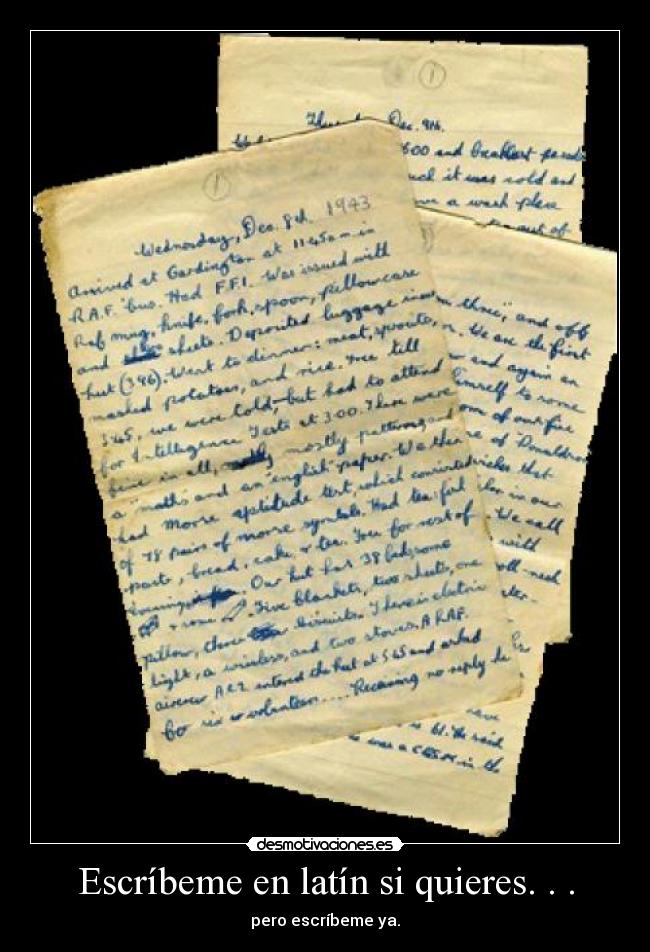 ①
Thursday Dec. 9th.
600 and breakfast parade
it was cold and
a wash place
out of
①
Wednesday, Dec. 8th. 1943
Arrived at Cardington at 11.45 a.m. in
R.A.F. 'bus. Had F.F.I. Was issued with
Raf mug, knife, fork, spoon, pillowcase
and sheets. Deposited luggage in
hut (396). Went to dinner: meat, sprouts,
mashed potatoes, and rice. Free till
3.45, we were told, but had to attend
for Intelligence Tests at 3.00. There were
five in all, mostly patterns, and
a "maths" and an "english" paper. We then
had Morse aptitude test, which consisted
of 78 pairs of morse symbols. Had tea: fish
paste, bread, cake & tea. Free for rest of
evening. Our hut has 38 beds, some
& some. Five blankets, two sheets, one
pillow, three biscuits. There is electric
light, a wireless, and two stoves. A R.A.F.
aircrew A.C.2 entered the hut at 5.45 and asked
for six volunteers..... Receiving no reply he
three," and off
We are the first
and again an
himself to some
of our five
of Donaldson
that
in our
We call
with
roll-neck
have
is 61. He said
was a in the
desmotivaciones.es
Escríbeme en latín si quieres. . .
pero escríbeme ya.